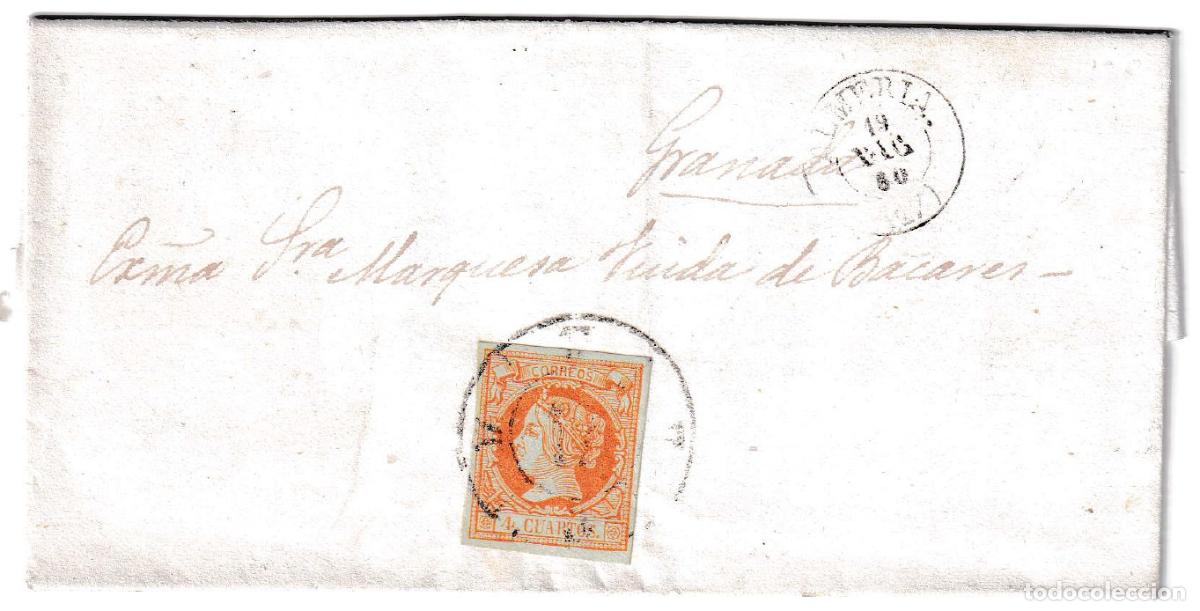 ALMERIA.
19
DIC
60
Granada
Exma Sra Marquesa Viuda de Bacares
CORREOS
4 CUARTOS.
todocoleccion